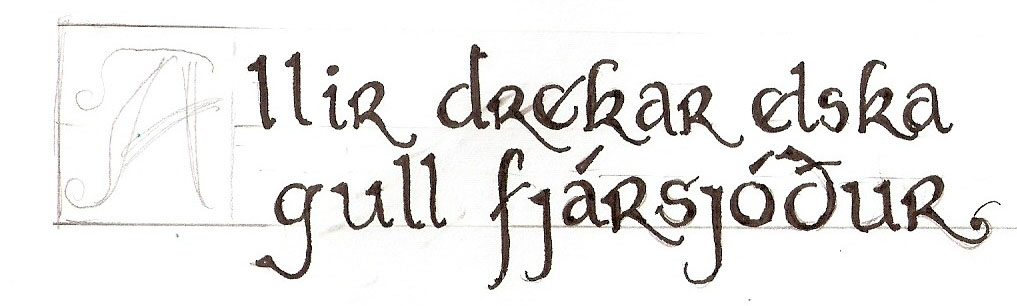 Allir drekar elska
gull fjársjóður